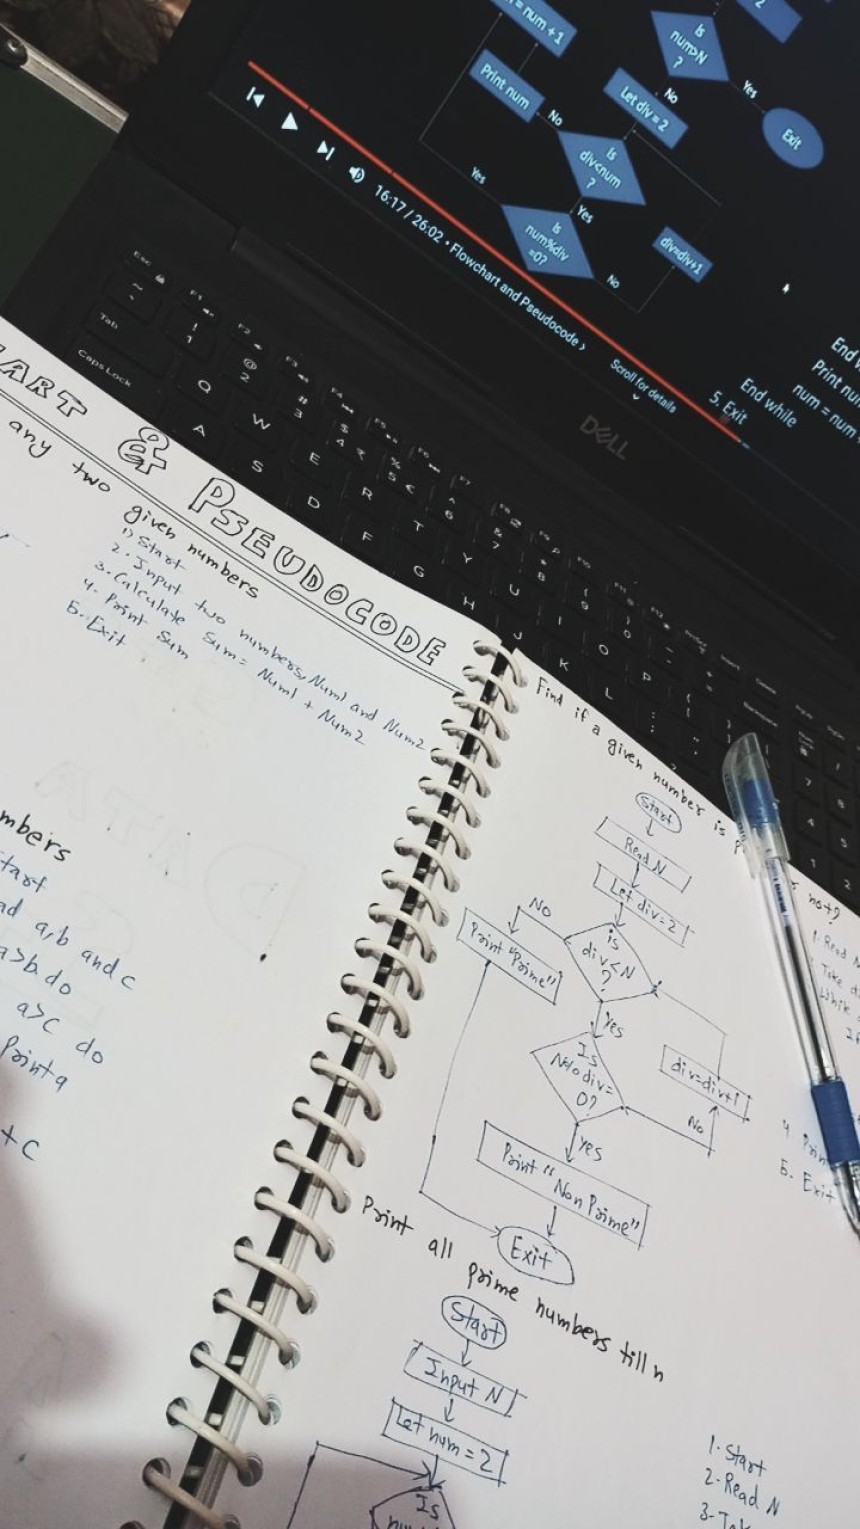 = num + 1
2
Is
num>N
?
Print num
No
Let div = 2
No
Yes
Exit
Is
div<num
?
Yes
Yes
Is
num%div
=0?
No
div=div+1
16:17 / 26:02 • Flowchart and Pseudocode >
Scroll for details
End
Print
num = num
End while
5. Exit
DELL
Esc
F1
F2
F3
F4
F5
F6
F7
Tab
Caps Lock
Q
W
E
R
T
Y
U
I
O
P
A
S
D
F
G
H
J
K
L
ART & PSEUDOCODE
any two given numbers
1) Start
2. Input two numbers, Num1 and Num2
3. Calculate Sum = Num1 + Num2
4. Print Sum
5. Exit
mbers
tart
ad a,b and c
a>b do
a>c do
Print a
+c
Find if a given number is
not?
Start
Read N
Let div=2
is
div<N
?
NO
Print "Prime"
Yes
Is
N%div=
0?
div=div+1
No
Yes
Print "Non Prime"
Exit
1. Read N
Take
While
If
4. Prin
5. Exit
Print all prime numbers till n
Start
Input N
Let num=2
Is
1. Start
2. Read N
3. Tak